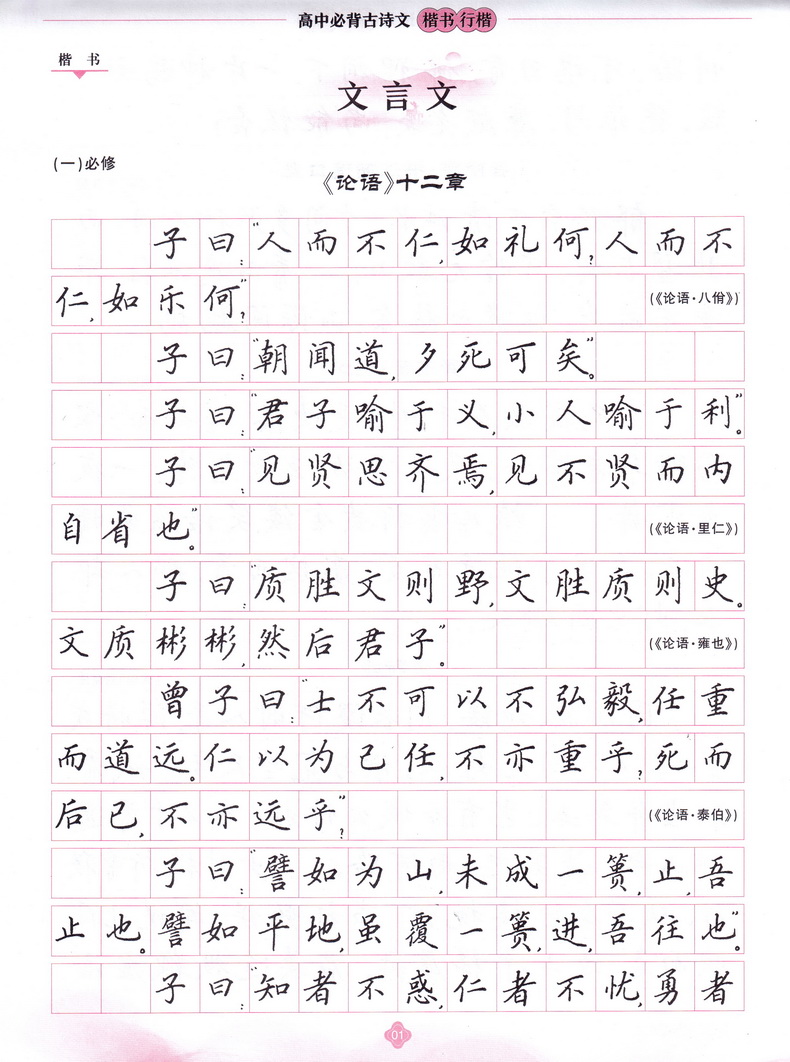 高中必背古诗文 楷书 行楷
楷书
文言文
(一)必修
《论语》十二章
子曰:“人而不仁,如礼何?人而不
仁,如乐何”? (《论语·八佾》)
子曰:“朝闻道,夕死可矣”。
子曰:“君子喻于义,小人喻于利”。
子曰:“见贤思齐焉,见不贤而内
自省也”。 (《论语·里仁》)
子曰:“质胜文则野,文胜质则史。
文质彬彬,然后君子”。 (《论语·雍也》)
曾子曰:“士不可以不弘毅,任重
而道远。仁以为己任,不亦重乎?死而
后已,不亦远乎”? (《论语·泰伯》)
子曰:“譬如为山,未成一篑,止,吾
止也。譬如平地,虽覆一篑,进,吾往也”。
子曰:“知者不惑,仁者不忧,勇者
01